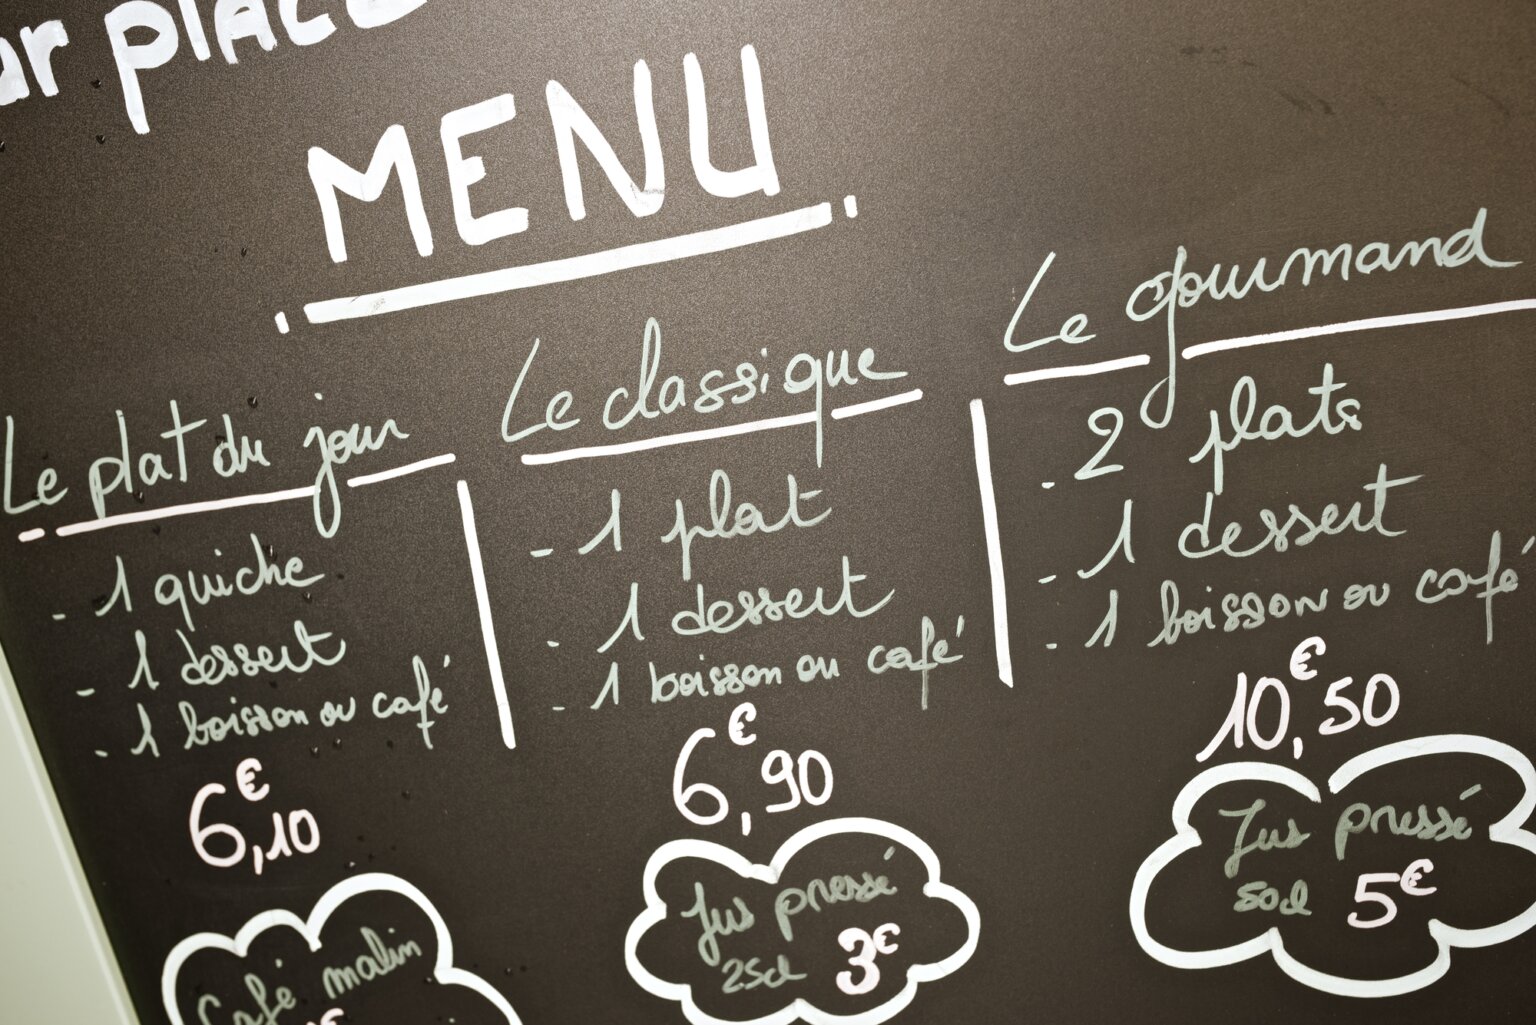 sur place
MENU
Le plat du jour
- 1 quiche
- 1 dessert
- 1 boisson ou café
6€,10
Le classique
- 1 plat
- 1 dessert
- 1 boisson ou café
6€,90
Le gourmand
- 2 plats
- 1 dessert
- 1 boisson ou café
10€,50
Café malin
€
Jus pressé
25cl 3€
Jus pressé
50cl 5€